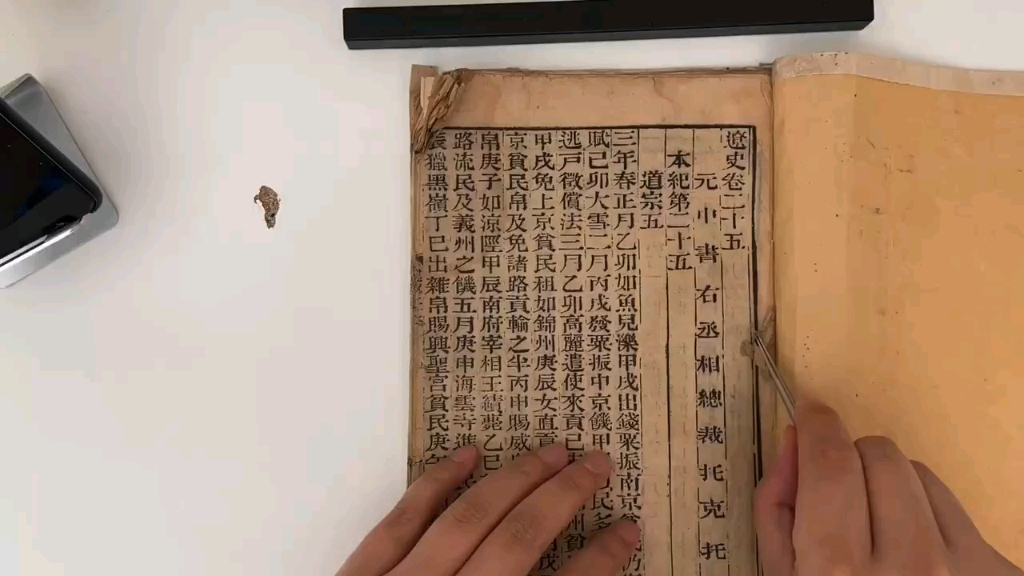 遼史卷二十五
元中書右丞相總裁托克托
本紀第二十五
道宗五
三年春正月乙卯如魚兒濼甲戌出錢粟振南京
賦己卯大雪二月丙戌發粟振中京饑甲
逃戶徵償法三月乙卯高麗遣使來貢己
甲戌免上京貧民租如錦州庚辰女直貢
京貧民帛及免諸路貢輸之半丙申賜咸
帛庚子如涼陘甲辰南府宰相王績薨乙巳
路流民及義州之饑五月庚申海雲寺進
獵黑嶺丁巳出雜帛賜興聖宮貧民庚